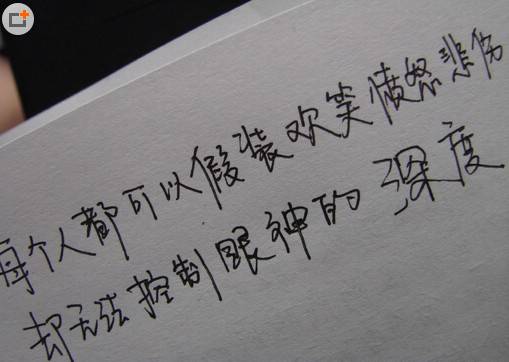 每个人都可以假装欢笑愤怒悲伤
却无法控制眼神的深度